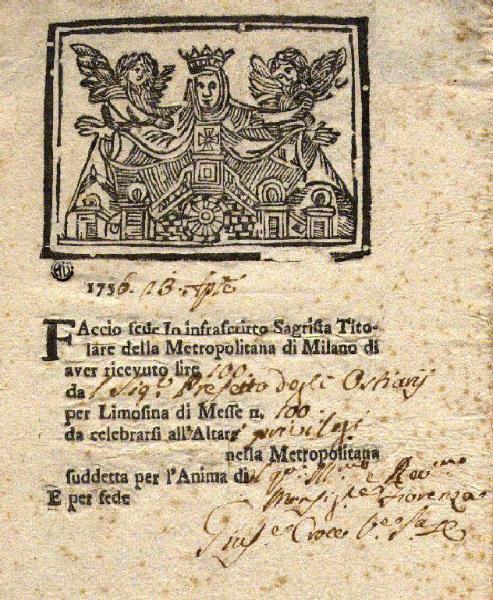 1756. 13. 7bre
FAccio fede Io infrascritto Sagrista Tito-
lare della Metropolitana di Milano di
aver ricevuto lire 100
da l Sigr. Prefetto degli Ostiarij
per Limosina di Messe n. 100
da celebrarsi all'Altare privilegi
nella Metropolitana
suddetta per l'Anima di Revmo
E per fede Monsigre Fiorenza
Croce